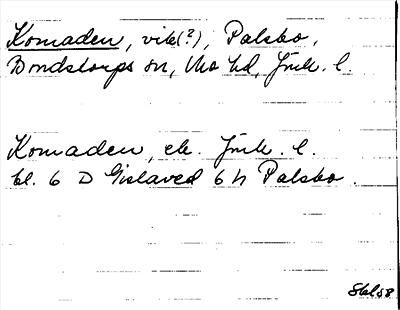 Komaden, vik(?), Palsbo,
Bondstorps sn, Mo hd, Jönk. l.
Komaden, ek. Jönk. l.
bl. 6 D Gislaved 6 h Palsbo.